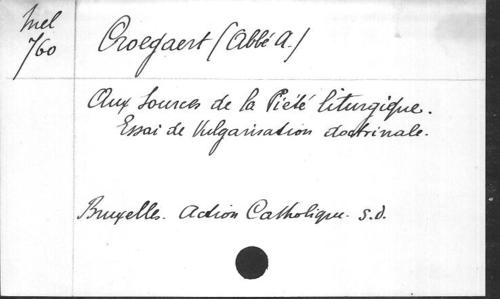 Mel
760
Croegaert (Abbé A.)
Aux Sources de la Piété liturgique.
Essai de Vulgarisation doctrinale.
Bruxelles. Action Catholique. s.d.